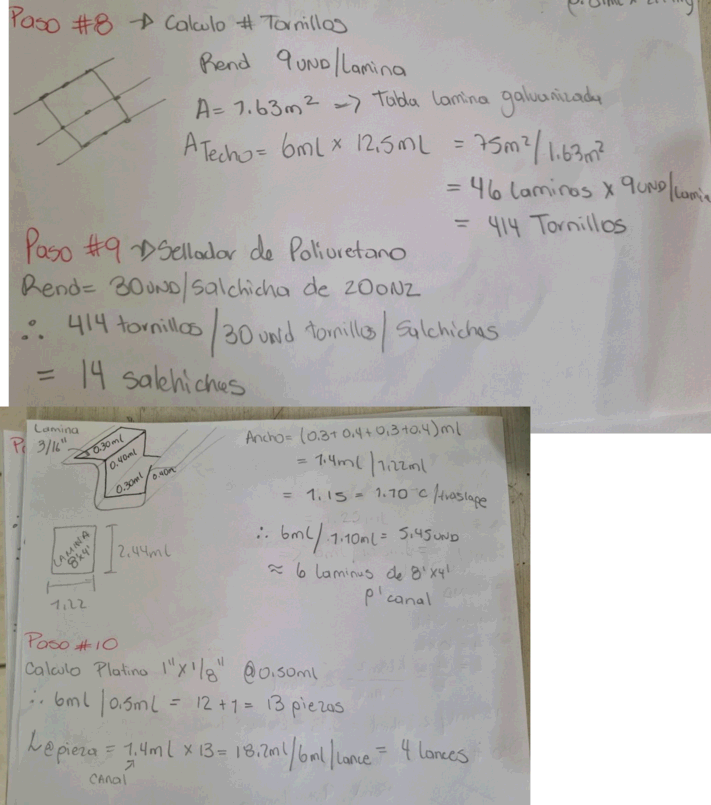 Paso #8 → Calculo # Tornillos
Rend 9UND/Lamina
A= 1.63m² → Tabla lamina galvanizada
ATecho= 6ml x 12.5ml = 75m²/1.63m²
= 46 laminas x 9UND/lamin
= 414 Tornillos
Paso #9 → Sellador de Poliuretano
Rend= 30UND/Salchicha de 20ONZ
∴ 414 tornillos/30 und tornillo/Salchichas
= 14 salchichas
Lamina
3/16"
0.30ml
0.40ml
0.30ml
0.40m
Ancho= (0.3+0.4+0.3+0.4)ml
= 1.4ml/1.22ml
= 1.15 = 1.10 c/traslape
∴ 6ml/1.10ml= 5.45UND
≈ 6 laminas de 8'x4'
p' canal
LAMINA
8'x4'
2.44ml
1.22
Paso #10
Calculo Platina 1"x1/8" @0.50ml
∴ 6ml/0.5ml = 12+1= 13 piezas
L@pieza = 1.4ml x 13= 18.2ml/6ml/lance = 4 lances
canal